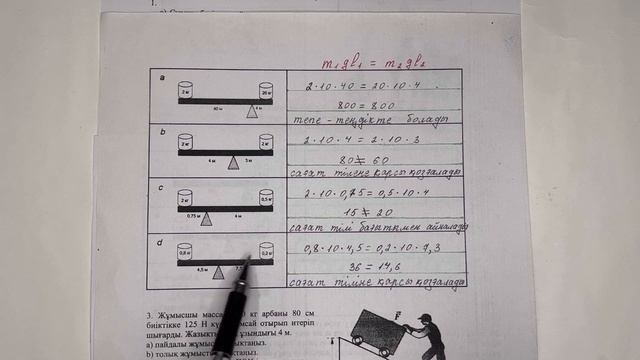 1.
m₁gl₁ = m₂gl₂
a
2 кг
20 кг
40 м
4 м
2·10·40 = 20·10·4
800 = 800
тепе-теңдікте болады
b
2 кг
2 кг
4 м
3 м
2·10·4 = 2·10·3
80 ≠ 60
сағат тіліне қарсы қозғалады
c
2 кг
0,5 кг
0,75 м
4 м
2·10·0,75 = 0,5·10·4
15 ≠ 20
сағат тілі бағытымен айналады
d
0,8 кг
0,2 кг
4,5 м
0,8·10·4,5 = 0,2·10·7,3
36 = 14,6
сағат тіліне қарсы қозғалады
3. Жұмысшы масса кг арбаны 80 см
биіктікке 125 Н отырып итеріп
шығарды. Жазықты ұзындығы 4 м.
a) пайдалы жұмыс
b) толық жұмыст
F